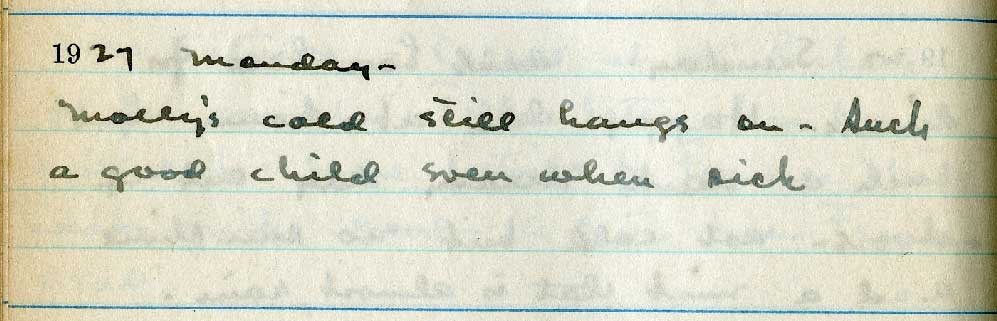 1927 Monday-
Molly's cold still hangs on - Such
a good child even when sick